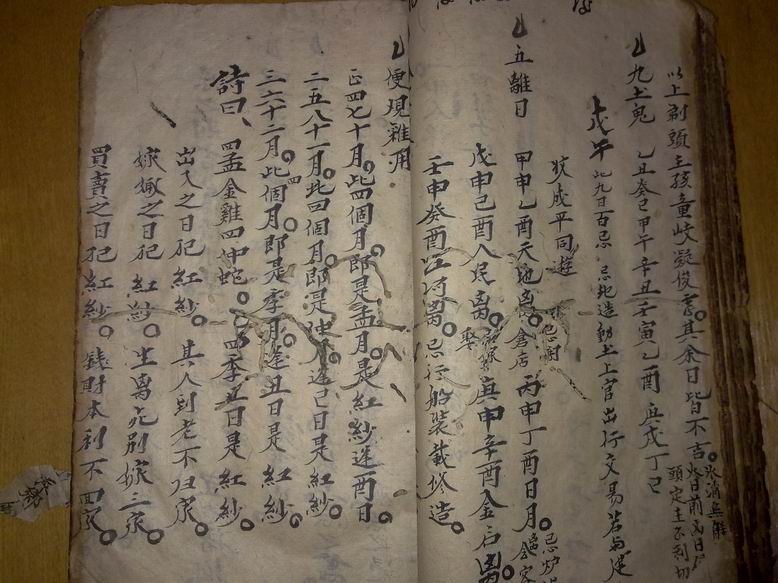 以上剃頭主孩童岐嶷俊秀。其余日皆不吉。
九土鬼 乙丑癸巳甲午辛丑壬寅乙酉庚戌丁巳
戊午 此九日百忌 忌地造動土上官出行交易若与建
破成平同遊
五離日 甲申乙酉天地离。丙申丁酉日月。
戊申己酉人民离。庚申辛酉金石离
壬申癸酉江河离。忌行船装載修造。
便現雜用
正四七十月。此四個月。即是孟月。是紅紗逢酉日。
二五八十一月。此四個月。即是仲月逢巳日是紅紗
三六十二月。此四個月。即是季月。逢丑日是紅紗。
詩曰、四孟金雞四仲蛇。四季丑日是紅紗。
出入之日犯紅紗。其人到老不归家。
嫁娶之日犯紅紗。生离死別嫁三家。
買賣之日犯紅紗。錢財本利不回家。